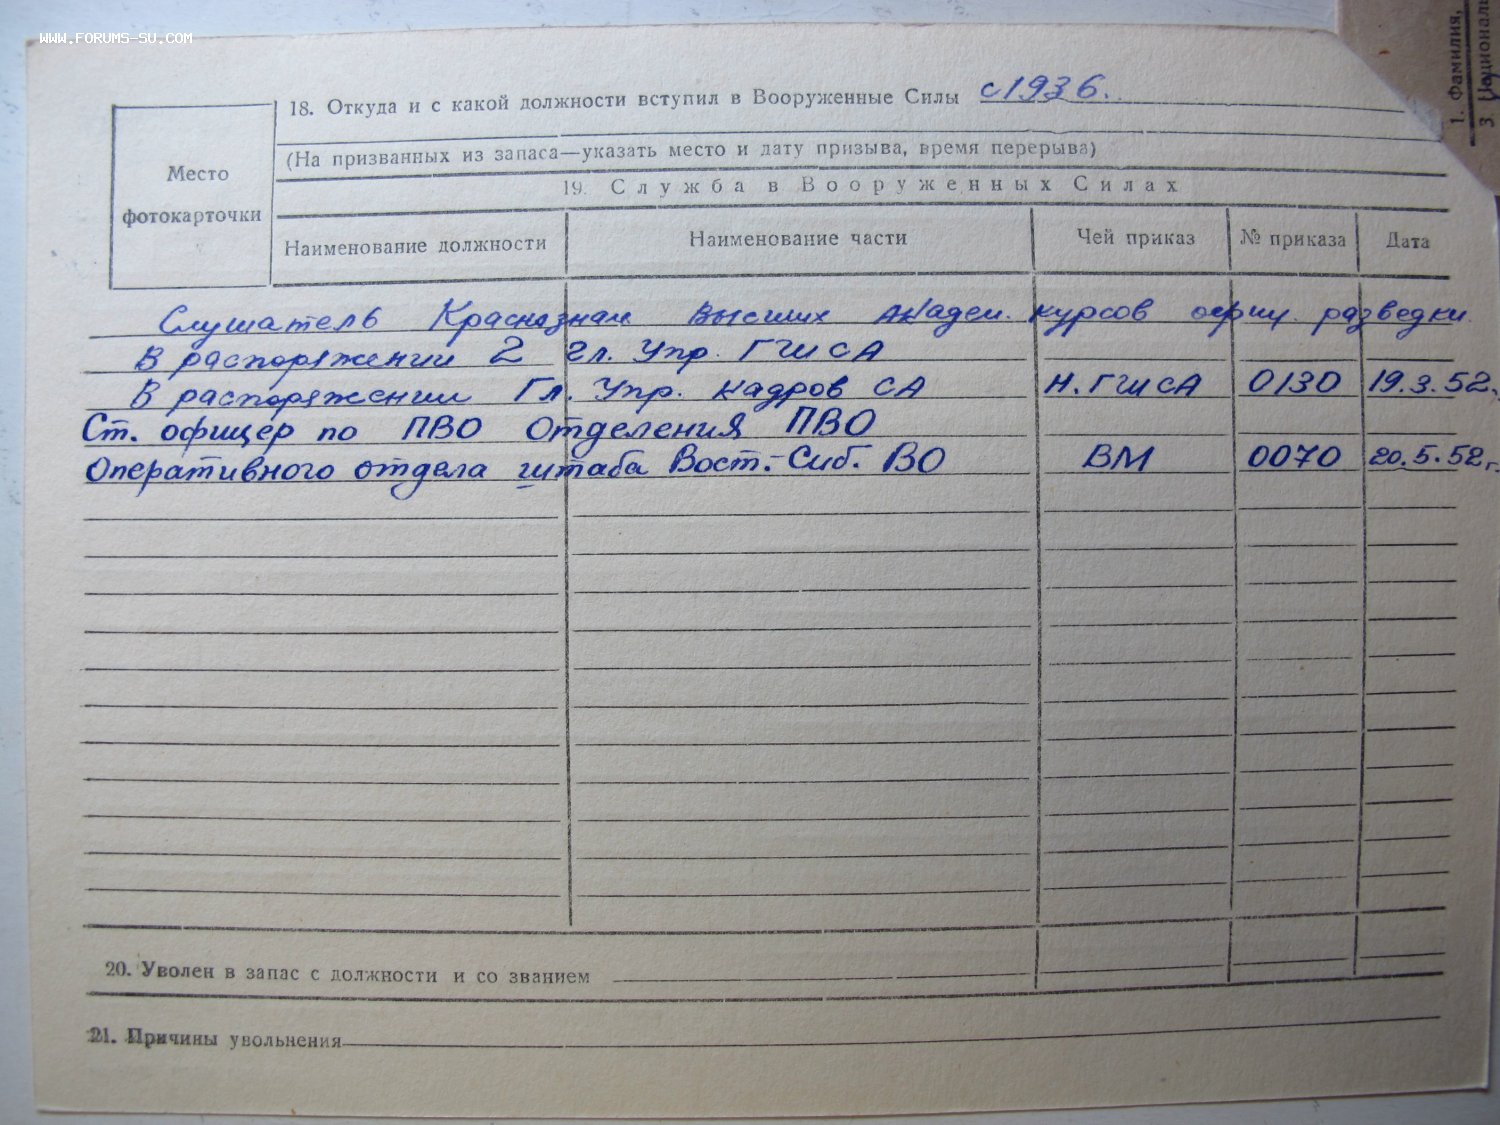 WWW.FORUMS-SU.COM
1. Фамилия,
18. Откуда и с какой должности вступил в Вооруженные Силы с 1936.
(На призванных из запаса—указать место и дату призыва, время перерыва)
Место
фотокарточки
19. Служба в Вооруженных Силах
Наименование должности Наименование части Чей приказ № приказа Дата
Слушатель Краснознам Высших Академ. курсов офиц. разведки.
В распоряжении 2 гл. Упр. ГШСА
В распоряжении Гл. Упр. кадров СА Н.ГШСА 0130 19.3.52.
Ст. офицер по ПВО Отделения ПВО
Оперативного отдела штаба Вост.-Сиб. ВО ВМ 0070 20.5.52г.
20. Уволен в запас с должности и со званием
21. Причины увольнения